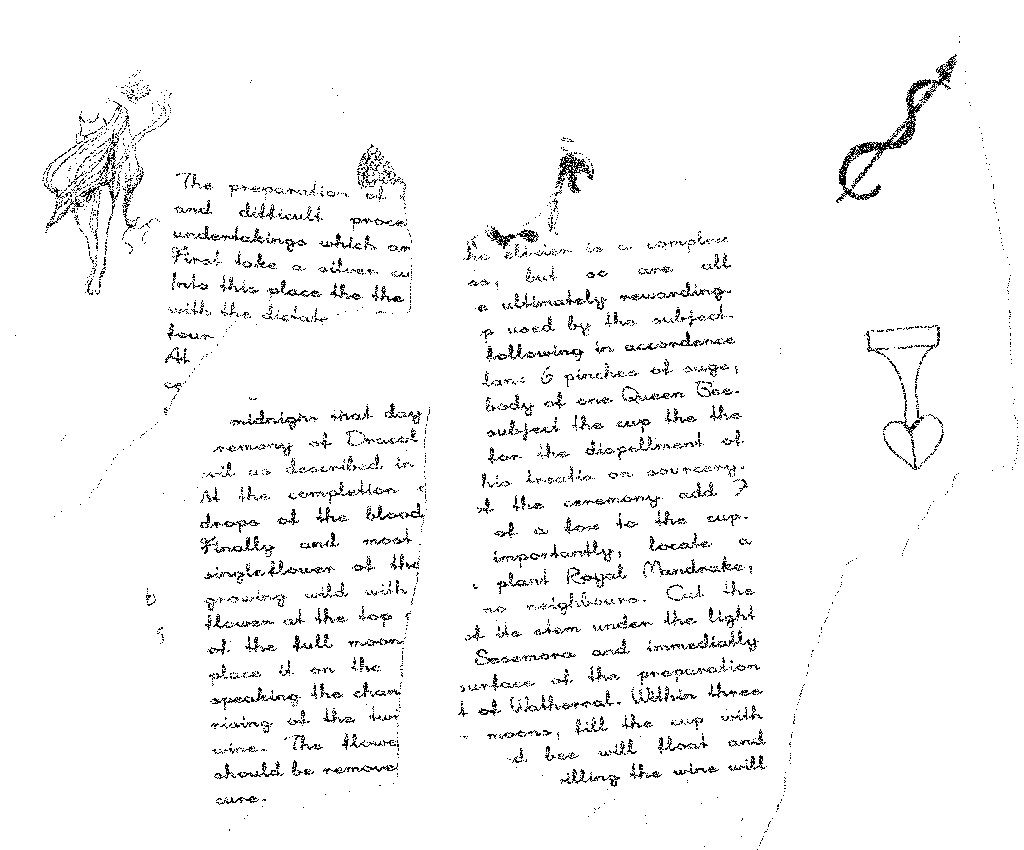 The preparation of
and difficult proce
undertakings which ar
First take a silver cu
Into this place the the
with the dictate
four
At
ce
midnight that day
remony of Dracol
vil as described in
At the completion
drops of the blood
Finally and most
single flower of the
growing wild with
flower at the top
of the full moon
place it on the
speaking the chan
rising of the twi
wine. The flowe
should be remove
cure.
he elixier is a complex
ss, but so are all
e ultimately rewarding.
p used by the subject.
following in accordence
lan: 6 pinches of sage,
body of one Queen Bee.
subject the cup the the
for the dispellment of
his treatis on sourcery.
of the ceremony add 7
of a fox to the cup.
importantly, locate a
plant Royal Mandrake,
no neighbours. Cut the
of its stem under the light
Sesemora and immediatly
surface of the preparation
t of Wathorral. Within three
moons, fill the cup with
d bee will float and
rilling the wine will